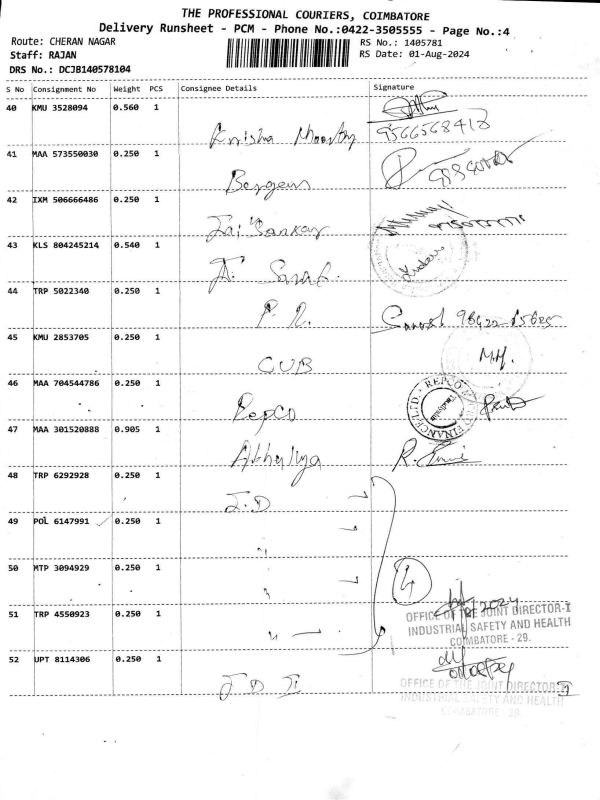 THE PROFESSIONAL COURIERS, COIMBATORE
Delivery Runsheet - PCM - Phone No.:0422-3505555 - Page No.:4
Route: CHERAN NAGAR
RS No.: 1405781
Staff: RAJAN
RS Date: 01-Aug-2024
DRS No.: DCJB140578104
S No Consignment No Weight PCS Consignee Details Signature
40 KMU 3528094 0.560 1
Krisha Moorthy 9566568418
41 MAA 573550030 0.250 1
Bergen
42 IXM 506666486 0.250 1
Jai Sankar
43 KLS 804245214 0.540 1
44 TRP 5022340 0.250 1
P. R.
45 KMU 2853705 0.250 1
CUB M.H.
46 MAA 704544786 0.250 1
Repco REPCO FINANCE LTD.
47 MAA 301520888 0.905 1
Athulya
48 TRP 6292928 0.250 1
J.D
49 POL 6147991 0.250 1
"
50 MTP 3094929 0.250 1
" 4
51 TRP 4550923 0.250 1
"
OFFICE OF THE JOINT DIRECTOR-I
INDUSTRIAL SAFETY AND HEALTH
COIMBATORE - 29.
52 UPT 8114306 0.250 1
J D II
OFFICE OF THE JOINT DIRECTOR-II
INDUSTRIAL SAFETY AND HEALTH
COIMBATORE - 29.